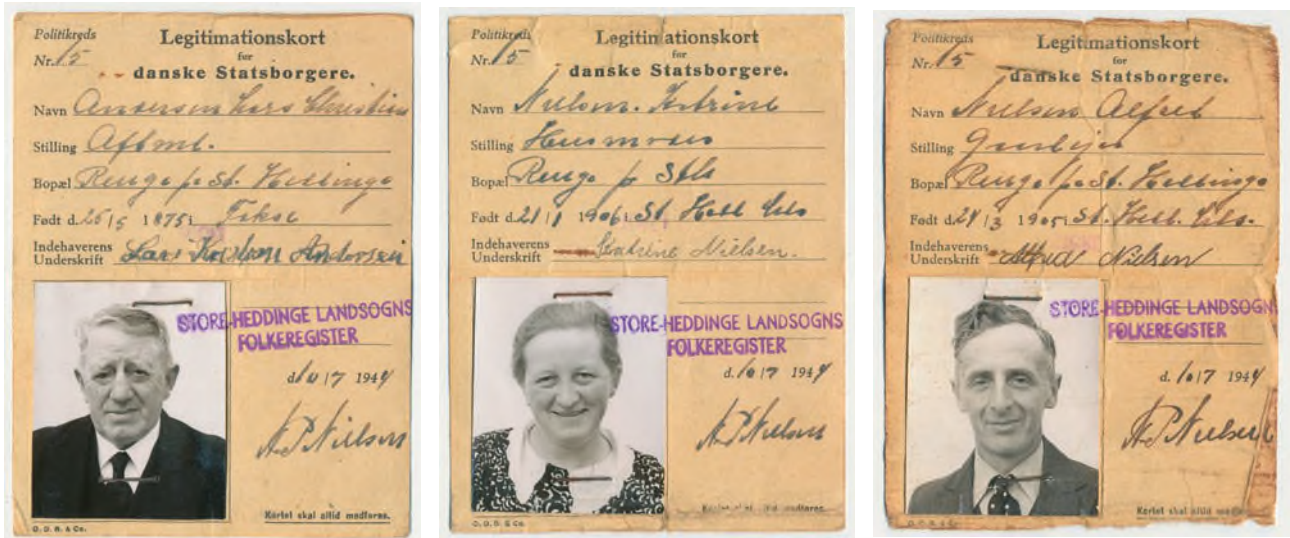 Politikreds
Nr. 15
Legitimationskort
for
danske Statsborgere.
Navn Andersen Lars Christian
Stilling Aftmd.
Bopæl Renge p. St. Heddinge
Født d. 25/5 1875 i Fakse
Indehaverens
Underskrift Lars Andersen
STORE-HEDDINGE LANDSOGNS
FOLKEREGISTER
d. 10/7 1944
N P Nielsen
Kortet skal altid medføres.
O. D. R. & Co.
Politikreds
Nr. 15
Legitimationskort
for
danske Statsborgere.
Navn Nielsen. Katrine
Stilling Husmoder
Bopæl Renge p
Født d. 21/1 1906 i St. Hedd.
Indehaverens
Underskrift Katrine Nielsen.
STORE-HEDDINGE LANDSOGNS
FOLKEREGISTER
d. 10/7 1944
N P Nielsen
Kortet skal altid medføres.
O. D. R. & Co.
Politikreds
Nr. 15
Legitimationskort
for
danske Statsborgere.
Navn Nielsen Alfred
Stilling Gaardejer
Bopæl Renge p. St. Heddinge
Født d. 24/3 1905 i St. Hedd.
Indehaverens
Underskrift Alfred Nielsen
STORE-HEDDINGE LANDSOGNS
FOLKEREGISTER
d. 10/7 1944
N P Nielsen
Kortet skal altid medføres.